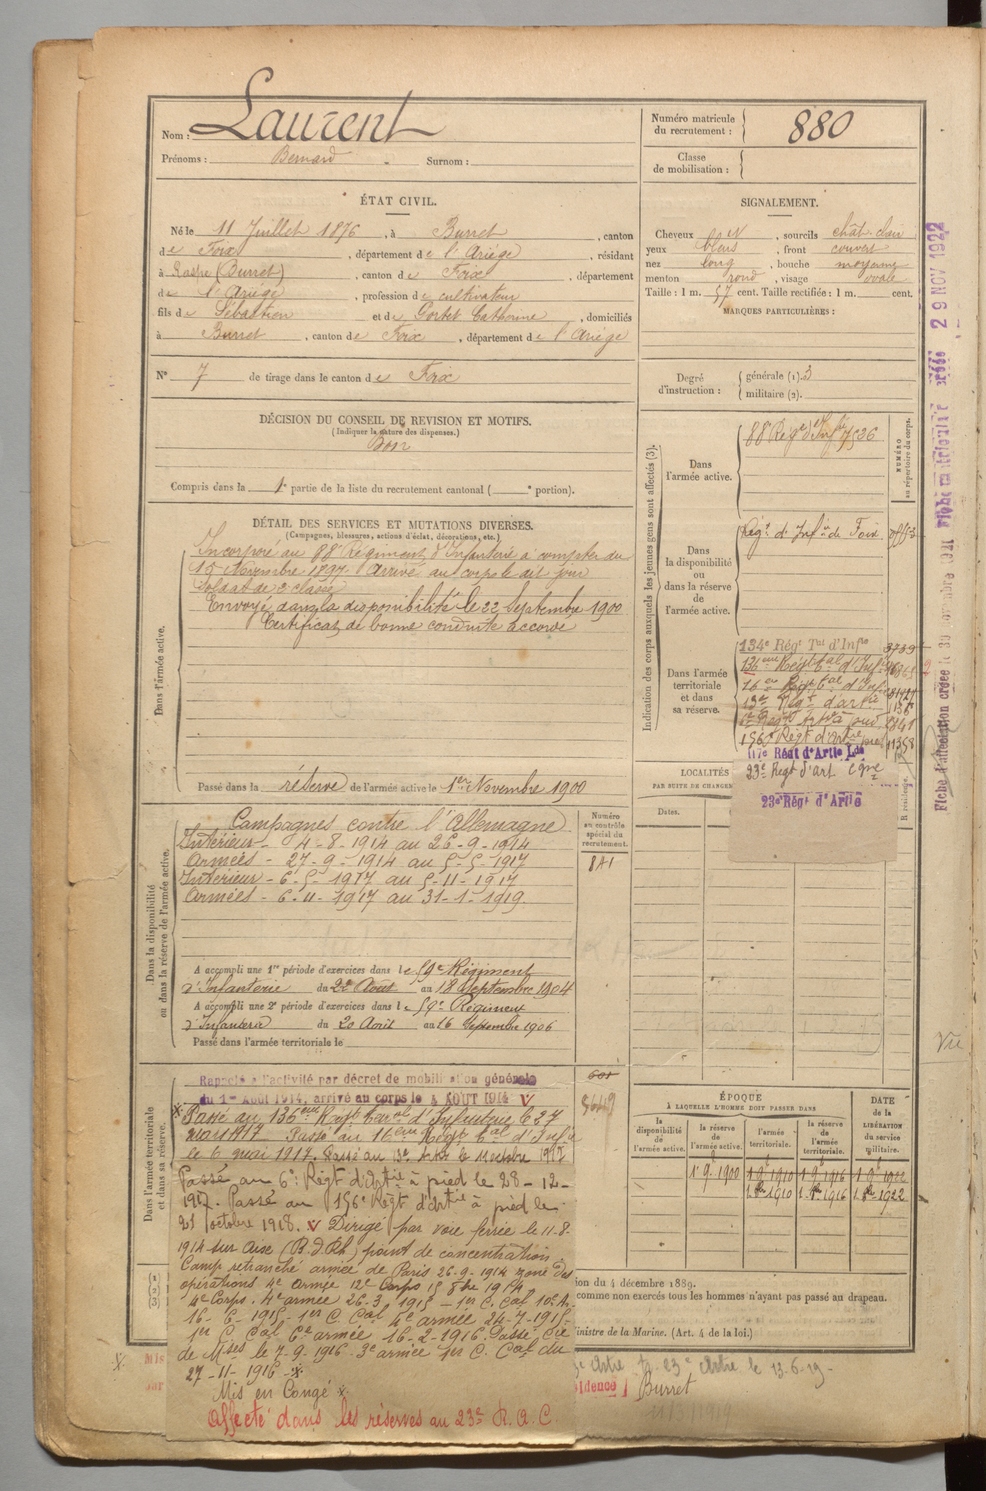 Nom : Laurent
Prénoms : Bernard Surnom :
Numéro matricule du recrutement : 880
Classe de mobilisation :
ÉTAT CIVIL.
Né le 11 Juillet 1876, à Burret, canton
de Foix, département de l'Ariége, résidant
à (Burret), canton de Foix, département
de l'Ariége, profession de cultivateur
fils de Sébastien et de Catherine, domiciliés
à Burret, canton de Foix, département de l'Ariége
N° 7 de tirage dans le canton de Foix
SIGNALEMENT.
Cheveux sourcils chât clair
yeux bleus, front couvert
nez long, bouche moyenne
menton rond, visage ovale
Taille : 1 m. 57 cent. Taille rectifiée : 1 m. cent.
MARQUES PARTICULIÈRES :
Degré d'instruction : générale (1). 3
militaire (2).
DÉCISION DU CONSEIL DE REVISION ET MOTIFS.
(Indiquer la nature des dispenses.)
Bon
Compris dans la 1e partie de la liste du recrutement cantonal ( e portion).
DÉTAIL DES SERVICES ET MUTATIONS DIVERSES.
(Campagnes, blessures, actions d'éclat, décorations, etc.)
Dans l'armée active.
Incorporé au 88e Régiment d'Infanterie à compter du
15 Novembre 1897. Arrivé au corps le dit jour
Soldat de 2e classe
Envoyé dans la disponibilité le 22 Septembre 1900
Certificat de bonne conduite accordé
Passé dans la réserve de l'armée active le 1er Novembre 1900
Indication des corps auxquels les jeunes gens sont affectés (3).
NUMÉRO au répertoire du corps.
Dans l'armée active.
88 Regt d'Infie 7536
Dans la disponibilité ou dans la réserve de l'armée active.
Régt d'Infie de Foix
Dans l'armée territoriale et dans sa réserve.
134e Régt Tal d'Infie 3739
136eme Régt tal d'Infie
16eme Régt tal d'Infie
13e Régt d'artie
156e Régt d'Artie pied 11358
117e Régt d'Artie Lde
23e Régt d'art Cgne
23e Régt d'Artie
LOCALITÉS
PAR SUITE DE CHANGE
Dates.
R résidence.
Dans la disponibilité ou dans la réserve de l'armée active.
Numéro au contrôle spécial du recrutement.
841
Campagnes contre l'Allemagne
Intérieur - 4-8-1914 au 26-9-1914
Armées - 27-9-1914 au 5-5-1917
Intérieur - 6-5-1917 au 5-11-1917
Armées - 6-11-1917 au 31-1-1919
A accompli une 1re période d'exercices dans le 59e Régiment
d'Infanterie du 22 Août au 18 Septembre 1904
A accompli une 2e période d'exercices dans le 59e Régiment
d'Infanterie du 20 Août au 16 Septembre 1906
Passé dans l'armée territoriale le
Dans l'armée territoriale et dans sa réserve.
Rappelé à l'activité par décret de mobilisation générale
du 1er Août 1914, arrivé au corps le 4 AOUT 1914
Passé au 136eme Regt terral d'Infanterie le 27
mars 1917 Passé au 16eme Régt tal d'Infie
le 6 mai 1917. Passé au 13e Artie le 11 octobre 1917
Passé au 6e Régt d'Artie à pied le 28-12-
1917. Passé au 156e Régt d'Artie à pied le
21 octobre 1918. Dirigé par voie ferrée le 11-8-
1914 sur Oise (B.d.Rh) point de concentration.
Camp retranché armée de Paris 26-9-1914 zone des
opérations 4e Armée 12e Corps 15 8bre 1914
4e Corps. 4e armée 26-3-1915 - 1er C. Cal 10e Ar.
16-6-1915 - 1er C. Cal 4e armée 24-7-1915-
1er C. Cal 6e armée 16-2-1916. Passé Cie
de Mses le 7-9-1916 3e armée 1er C. Cal du
27-11-1916
Mis en Congé
Affecté dans les réserves au 23e R.A.C.
ÉPOQUE
À LAQUELLE L'HOMME DOIT PASSER DANS
la disponibilité de l'armée active.
la réserve de l'armée active.
l'armée territoriale.
la réserve de l'armée territoriale.
DATE de la LIBÉRATION du service militaire.
1 9 1900 1 9 1910 1 9 1916 1 9 1922
1 8 1910 1 8 1916 1 8 1922
ion du 4 décembre 1889.
comme non exercés tous les hommes n'ayant pas passé au drapeau.
inistre de la Marine. (Art. 4 de la loi.)
23e Artie le 13-6-19-
idence Burret
29 NOV 1922
Vu